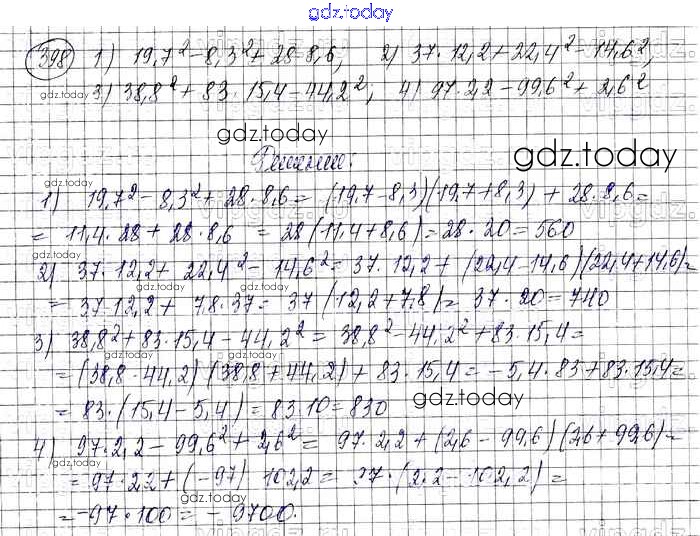 gdz.today
398 1) 19,7² - 8,3² + 28·8,6; 2) 37·12,2 + 22,4² - 14,6²;
gdz.today
3) 38,8² + 83·15,4 - 44,2²; 4) 97·2,2 - 99,6² + 2,6²
gdz.today
gdz.today
gdz.today
1) 19,7² - 8,3² + 28·8,6 = (19,7 - 8,3)(19,7 + 8,3) + 28·8,6 =
= 11,4·28 + 28·8,6 = 28(11,4 + 8,6) = 28·20 = 560
gdz.today
gdz.today
2) 37·12,2 + 22,4² - 14,6² = 37·12,2 + (22,4 - 14,6)(22,4 + 14,6) =
= 37·12,2 + 7,8·37 = 37(12,2 + 7,8) = 37·20 = 740
3) 38,8² + 83·15,4 - 44,2² = 38,8² - 44,2² + 83·15,4 =
gdz.today
gdz.today
= (38,8 - 44,2)(38,8 + 44,2) + 83·15,4 = -5,4·83 + 83·15,4 =
gdz.today
= 83·(15,4 - 5,4) = 83·10 = 830
gdz.today
4) 97·2,2 - 99,6² + 2,6² = 97·2,2 + (2,6 - 99,6)(2,6 + 99,6) =
gdz.today
= 97·2,2 + (-97) 102,2 = 97·(2,2 - 102,2) =
= -97·100 = -9700.